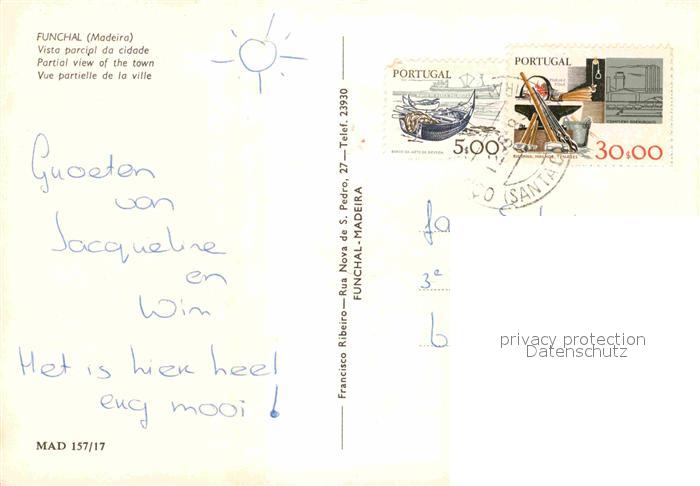 FUNCHAL (Madeira)
Vista parcial da cidade
Partial view of the town
Vue partielle de la ville
Groeten
van
Jacqueline
en
Wim
Het is hier heel
erg mooi!
MAD 157/17
Francisco Ribeiro—Rua Nova de S. Pedro, 27—Telef. 23930
FUNCHAL-MADEIRA
PORTUGAL
5$00
PORTUGAL
30$00
(SANTA
3e
privacy protection
Datenschutz